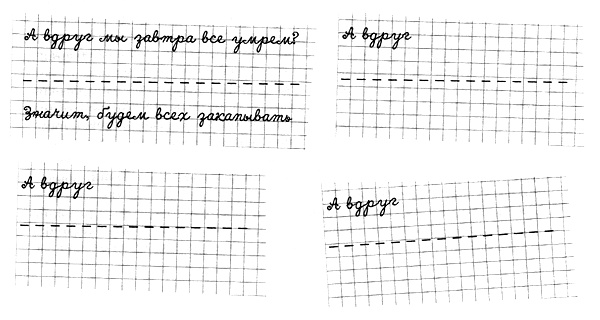 А вдруг мы завтра все умрем?
Значит, будем всех закапывать
А вдруг
А вдруг
А вдруг